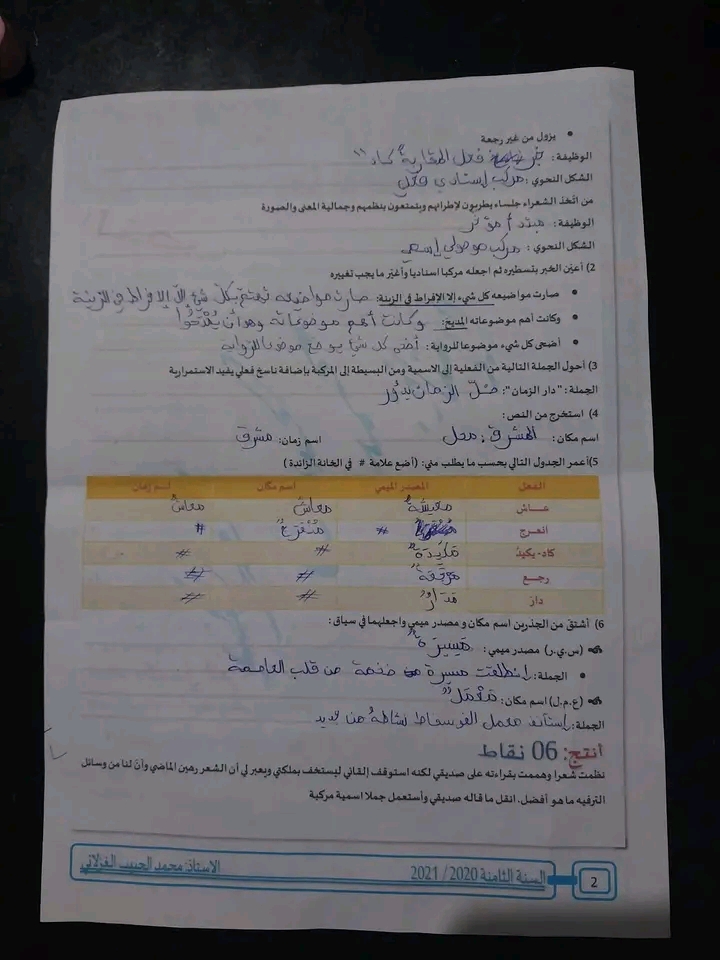 • يزول من غير رجعة
الوظيفة: خبر فعل المقاربة "كاد"
الشكل النحوي: مركب إسنادي فعلي
من اتّخذ الشعراء جلساء يطربون لإطرائهم ويتمتعون بنظمهم وجمالية المعنى والصورة
الوظيفة: مبتدأ مؤخر
الشكل النحوي: مركب موصولي إسمي
2) أعيّن الخبر بتسطيره ثم اجعله مركبا اسناديا وأغيّر ما يجب تغييره
• صارت مواضيعه كل شيء إلا الإفراط في الزينة: صارت مواضيعه تهتم بكل شيء إلا الإفراط في الزينة
• وكانت أهم موضوعاته المديح: وكانت أهم موضوعاته
• أضحى كل شيء موضوعا للرواية: أضحى كل شيء موضوعا للرواية
3) أحول الجملة التالية من الفعلية إلى الاسمية ومن البسيطة إلى المركبة بإضافة ناسخ فعلي يفيد الاستمرارية
الجملة: "دار الزمان": ظلّ الزمان يدور
4) استخرج من النص:
اسم مكان: المشرق، محل اسم زمان: مشرق
5) أعمر الجدول التالي بحسب ما يطلب مني: (أضع علامة # في الخانة الزائدة)
الفعل المصدر الميمي اسم مكان اسم زمان
عاش معيشة معاش معاش
انعرج # منعرج #
كاد-يكيد مكيدة # #
رجع # #
دار مدار # #
6) أشتق من الجذرين اسم مكان و مصدر ميمي واجعلهما في سياق:
(س.ي.ر) مصدر ميمي: مسيرة
• الجملة: انطلقت مسيرة ضخمة من قلب العاصمة
(ع.م.ل) اسم مكان: معمل
الجملة: إستأنف معمل الفوسفاط نشاطه من جديد
أنتج: 06 نقاط
نظمت شعرا وهممت بقراءته على صديقي لكنه استوقف إلقائي ليستخف بملكتي ويعبر لي أن الشعر رهين الماضي وأنّ لنا من وسائل
الترفيه ما هو أفضل. انقل ما قاله صديقي وأستعمل جملا اسمية مركبة
2 السنة الثامنة 2020 / 2021 الاستاذ: محمد الحبيب الغزلاني